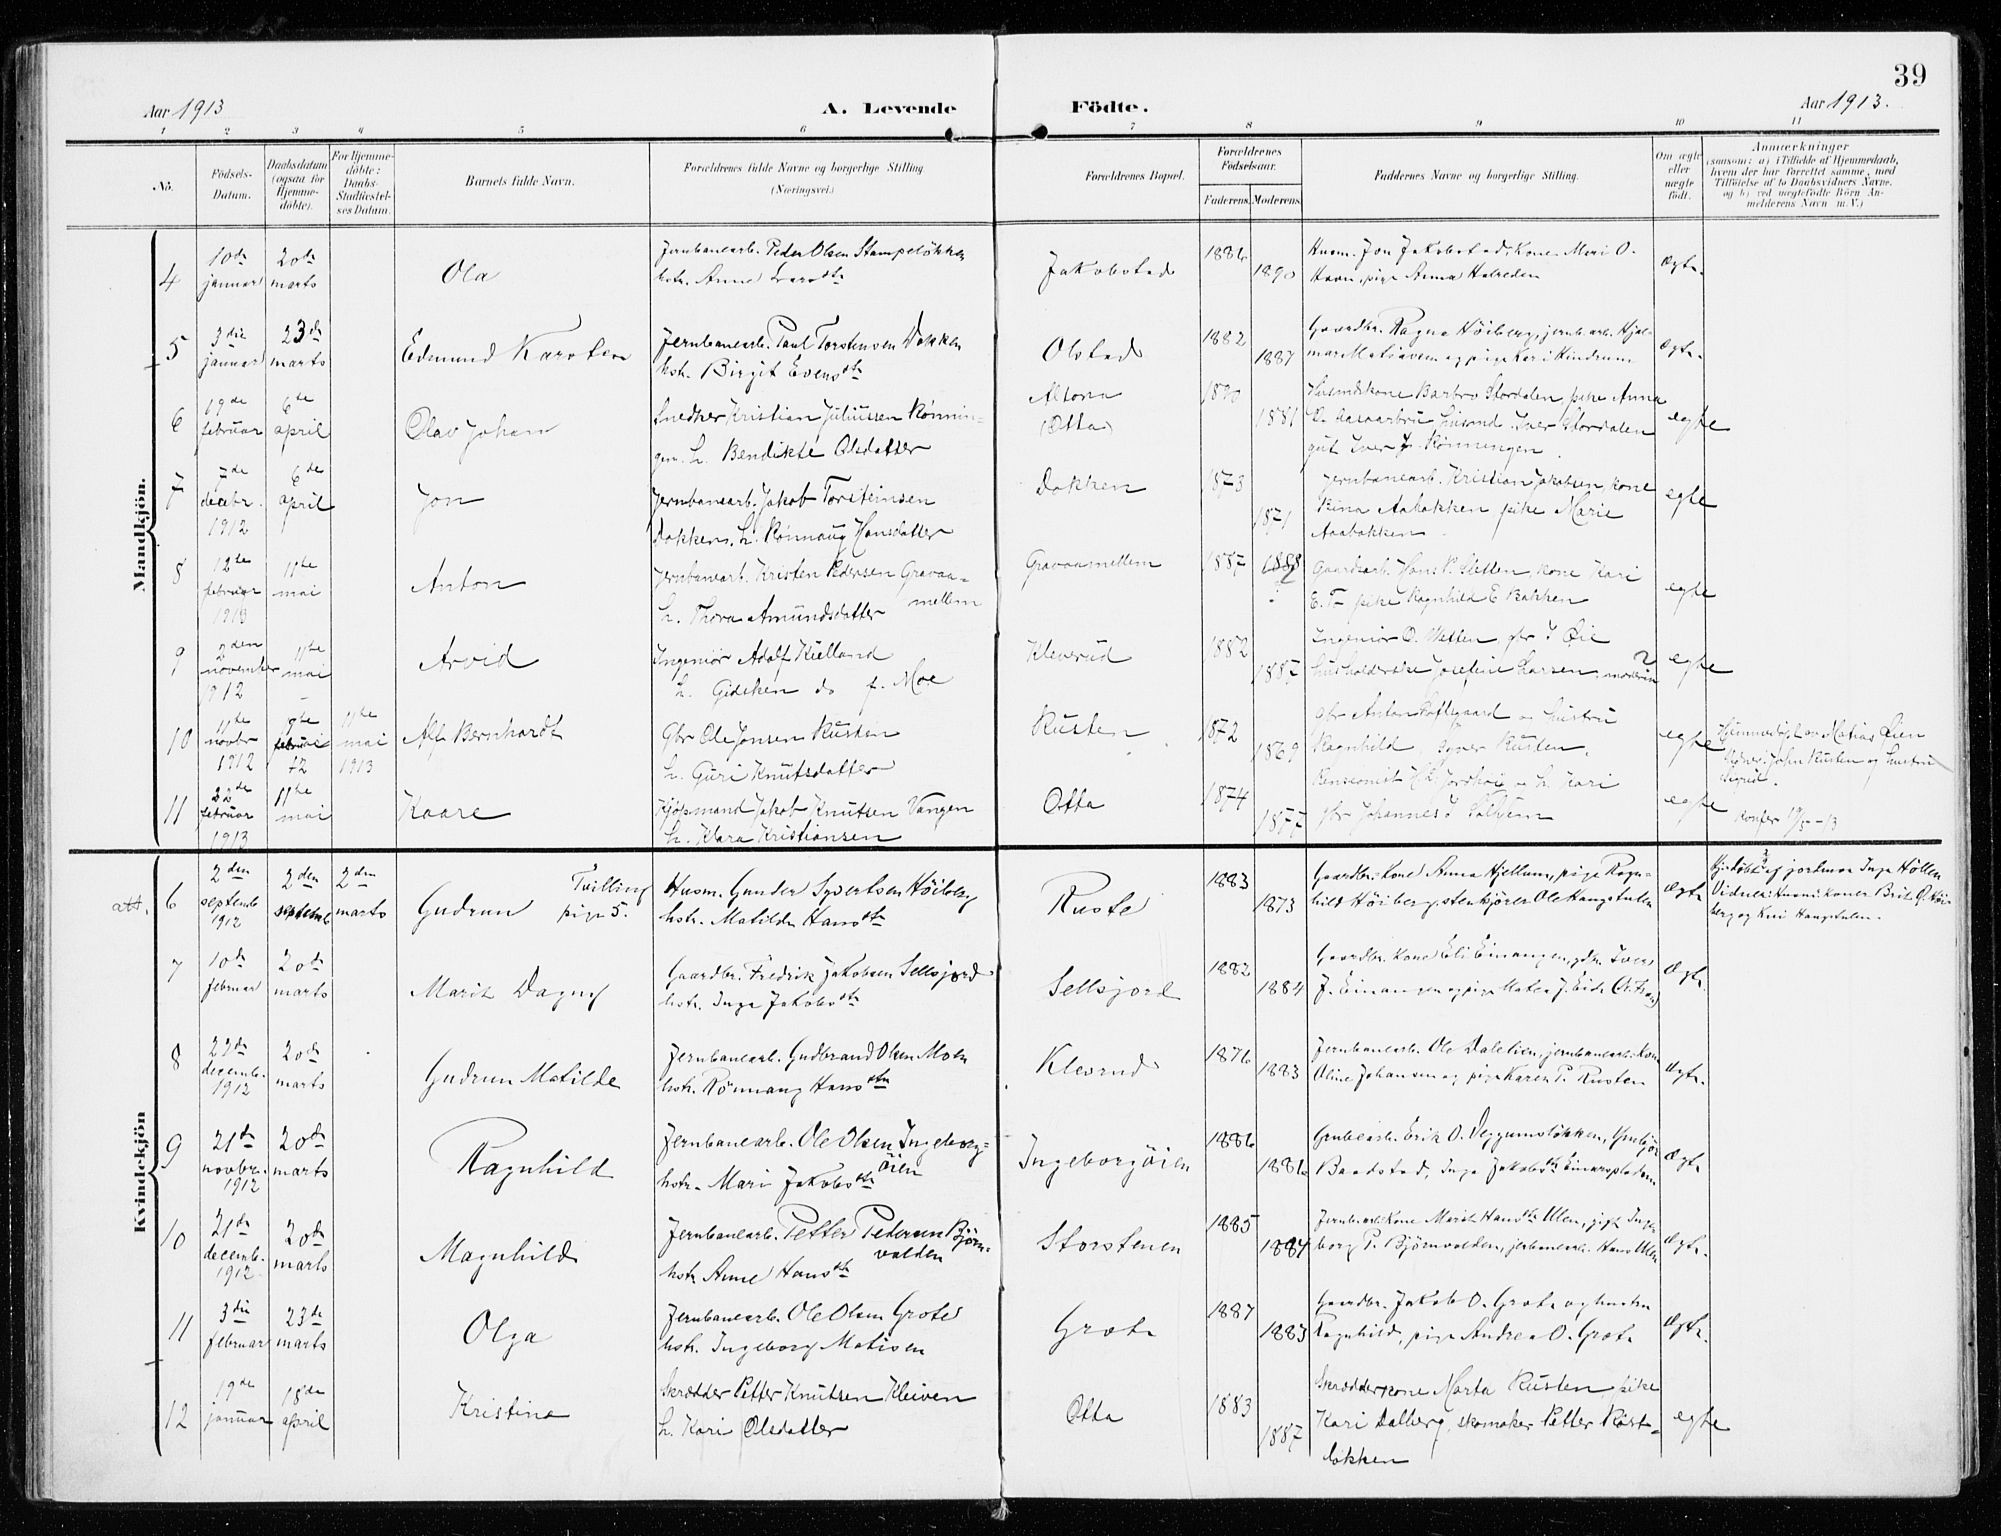 39
Aar 1913
A. Levende Födte.
Aar 1913.
1 2 3 4 5 6 7 8 9 10 11
No.
Födsels-Datum.
Daabsdatum (ogsaa for Hjemmedöbte).
For Hjemmedöbte: Daabs-Stadfæstelses Datum.
Barnets fulde Navn.
Forældrenes fulde Navne og borgerlige Stilling. (Næringsvei.)
Forældrenes Bopæl.
Forældrenes Födselsaar.
Faderens. Moderens.
Faddernes Navne og borgerlige Stilling.
Om ægte eller uægte födt.
Anmærkninger
(saasom: a) i Tilfælde af Hjemmedaab, hvem der har forrettet samme, med Tilföielse af to Daabsvidners Navne, og b) ved uægtefödte Börn Anmelderens Navn m. V.)
Mandkjön.
4 10de januar 20de marts Ola Jernbanearb. Peder Olsen Stampeløkken hstr. Anne Larsdtr Jakobstad 1886 1890 Husm. Jon Jakobstad, kone Mari O. Haavn, pige Anna Halreden Ægte.
5 3die januar 23de marts Edmund Karsten Jernbanearb. Paul Torstensen Dokken hstr. Birgit Evensdtr Olstad 1882 1887 Gaardbr. Ragna Høiberg, jernb.arb. Hjalmar og pige Kari Kindrum Ægte.
6 19de februar 6de april Olav Johan Snedker Kristian Juliussen Rønningen. h. Bendikte Olsdatter Altona (Otta) 1890 1881 Husmdskone Barbro Stordalen, pike Anna husmd. Iver Stordalen gut Iver J. Rønningen. egte
7 7de decbr. 1912 6de april Jon Jernbanearb. Jakob Torsteinsen Dokken. h. Rønnaug Hansdatter Dokken 1873 1871 Jernbanearb. Kristian Jakobsen, kone Rina Aabakken pike Marie Aabakken. egte
8 12te februar 1913 11te mai Anton Jernbanearb. Kristen Pedersen Gravaamellem h. Thora Amundsdatter Gravaamellem 1887 1888 Gaardsarb. Hans P. Sletten, kone Kari E. pike Ragnhild E Bakken egte
9 2den november 1912 11te mai Arvid Ingeniør Adolf Kielland h. Gidsken do f. Moe Kleverud 1882 1887 Ingeniør O. Wetten, gbr J Øie husholderske Josefine Larsen, moderen egte
10 11te novbr 1912 9de februar 11te mai 1913 Alf Bernhardt Gbr Ole Jonsen Rusten h. Guri Knutsdatter Rusten 1872 1869 Gbr Anton Loftsgaard og hustru Ragnhild, Syver Rusten. egte Hjemmedøbt av Matias Øien John Rusten og hustru Sigrid.
11 22de februar 1913 11te mai Kaare Kjøpmand Jakob Knutsen Vangen h. Klara Kristiansen Otta 1874 1877 Pensionist Jordhøi h. Kari gbr Johannes J Solhem egte Konfer
Kvindekjön
att. 6 2den septemb 1912 2den septemb 2den marts Gudrun Tvilling pige 5. Husm. Gunder Syvertsen Høiberg hstr. Matilde Hansdtr Ruste 1883 1873 Gaardbr.- kone Anna Hjellum, pige Ragnhild Høiberg, stenkjører Ole Haugstulen Ægte Hj.døbt af jordmor Inga Høllen Vidner: Husm.koner Brit O. Høiberg og Kari Haugstulen.
7 10de februar 20de marts Marit Dagny Gaardbr. Fredrik Jakobsen Sellsjord hstr. Inga Jakobsdtr Sellsjord 1882 1884 Gaardbr. kone Eli Einangen, gdbr. Iver J. Einangen og pige Matea J. Eide Ægte.
8 22de decemb. 1912 20de marts Gudrun Matilde Jernbanearb. Gudbrand Olsen Moen hstr. Rønnaug Hansdtr Kleverud 1876 1883 Jernbanearb. Ole Dalelien, jernbanearb. kone Oline Johansen og pige Karen P. Rusten Ægte.
9 21de novbr. 1912 20de marts Ragnhild Jernbanearb. Ole Olsen Ingeborgøien hstr. Mari Jakobsdtr Ingeborgøien 1886 1886 Grubearb. Erik O. Veggumsløkken, Baadstad, Inga Jakobsdtr Einarspladen Ægte
10 21de decemb. 1912 20de marts Magnhild Jernbanearb. Petter Pedersen Bjørnvolden hstr Anne Hansdtr Storstenen 1885 1884 Jernb.arb. kone Marit Hansdtr Ulen, pige Ingeborg P. Bjørnvolden, jernbanearb. Hans Ulen Ægte.
11 3die februar 23de marts Olga Jernbanearb. Ole Olsen Grote hstr. Ingeborg Matisen Grote 1887 1883 Gaardbr. Jakob O. Grote og hustru Ragnhild, pige Andrea O. Grote Ægte.
12 19de januar 18de april Kristine Skrædder Petter Knutsen Kleiven h. Kari Olsdatter Otta 1883 1887 Skrædderkone Marta Rusten pike Kari Dalberg, skomaker Petter Røstløkken egte